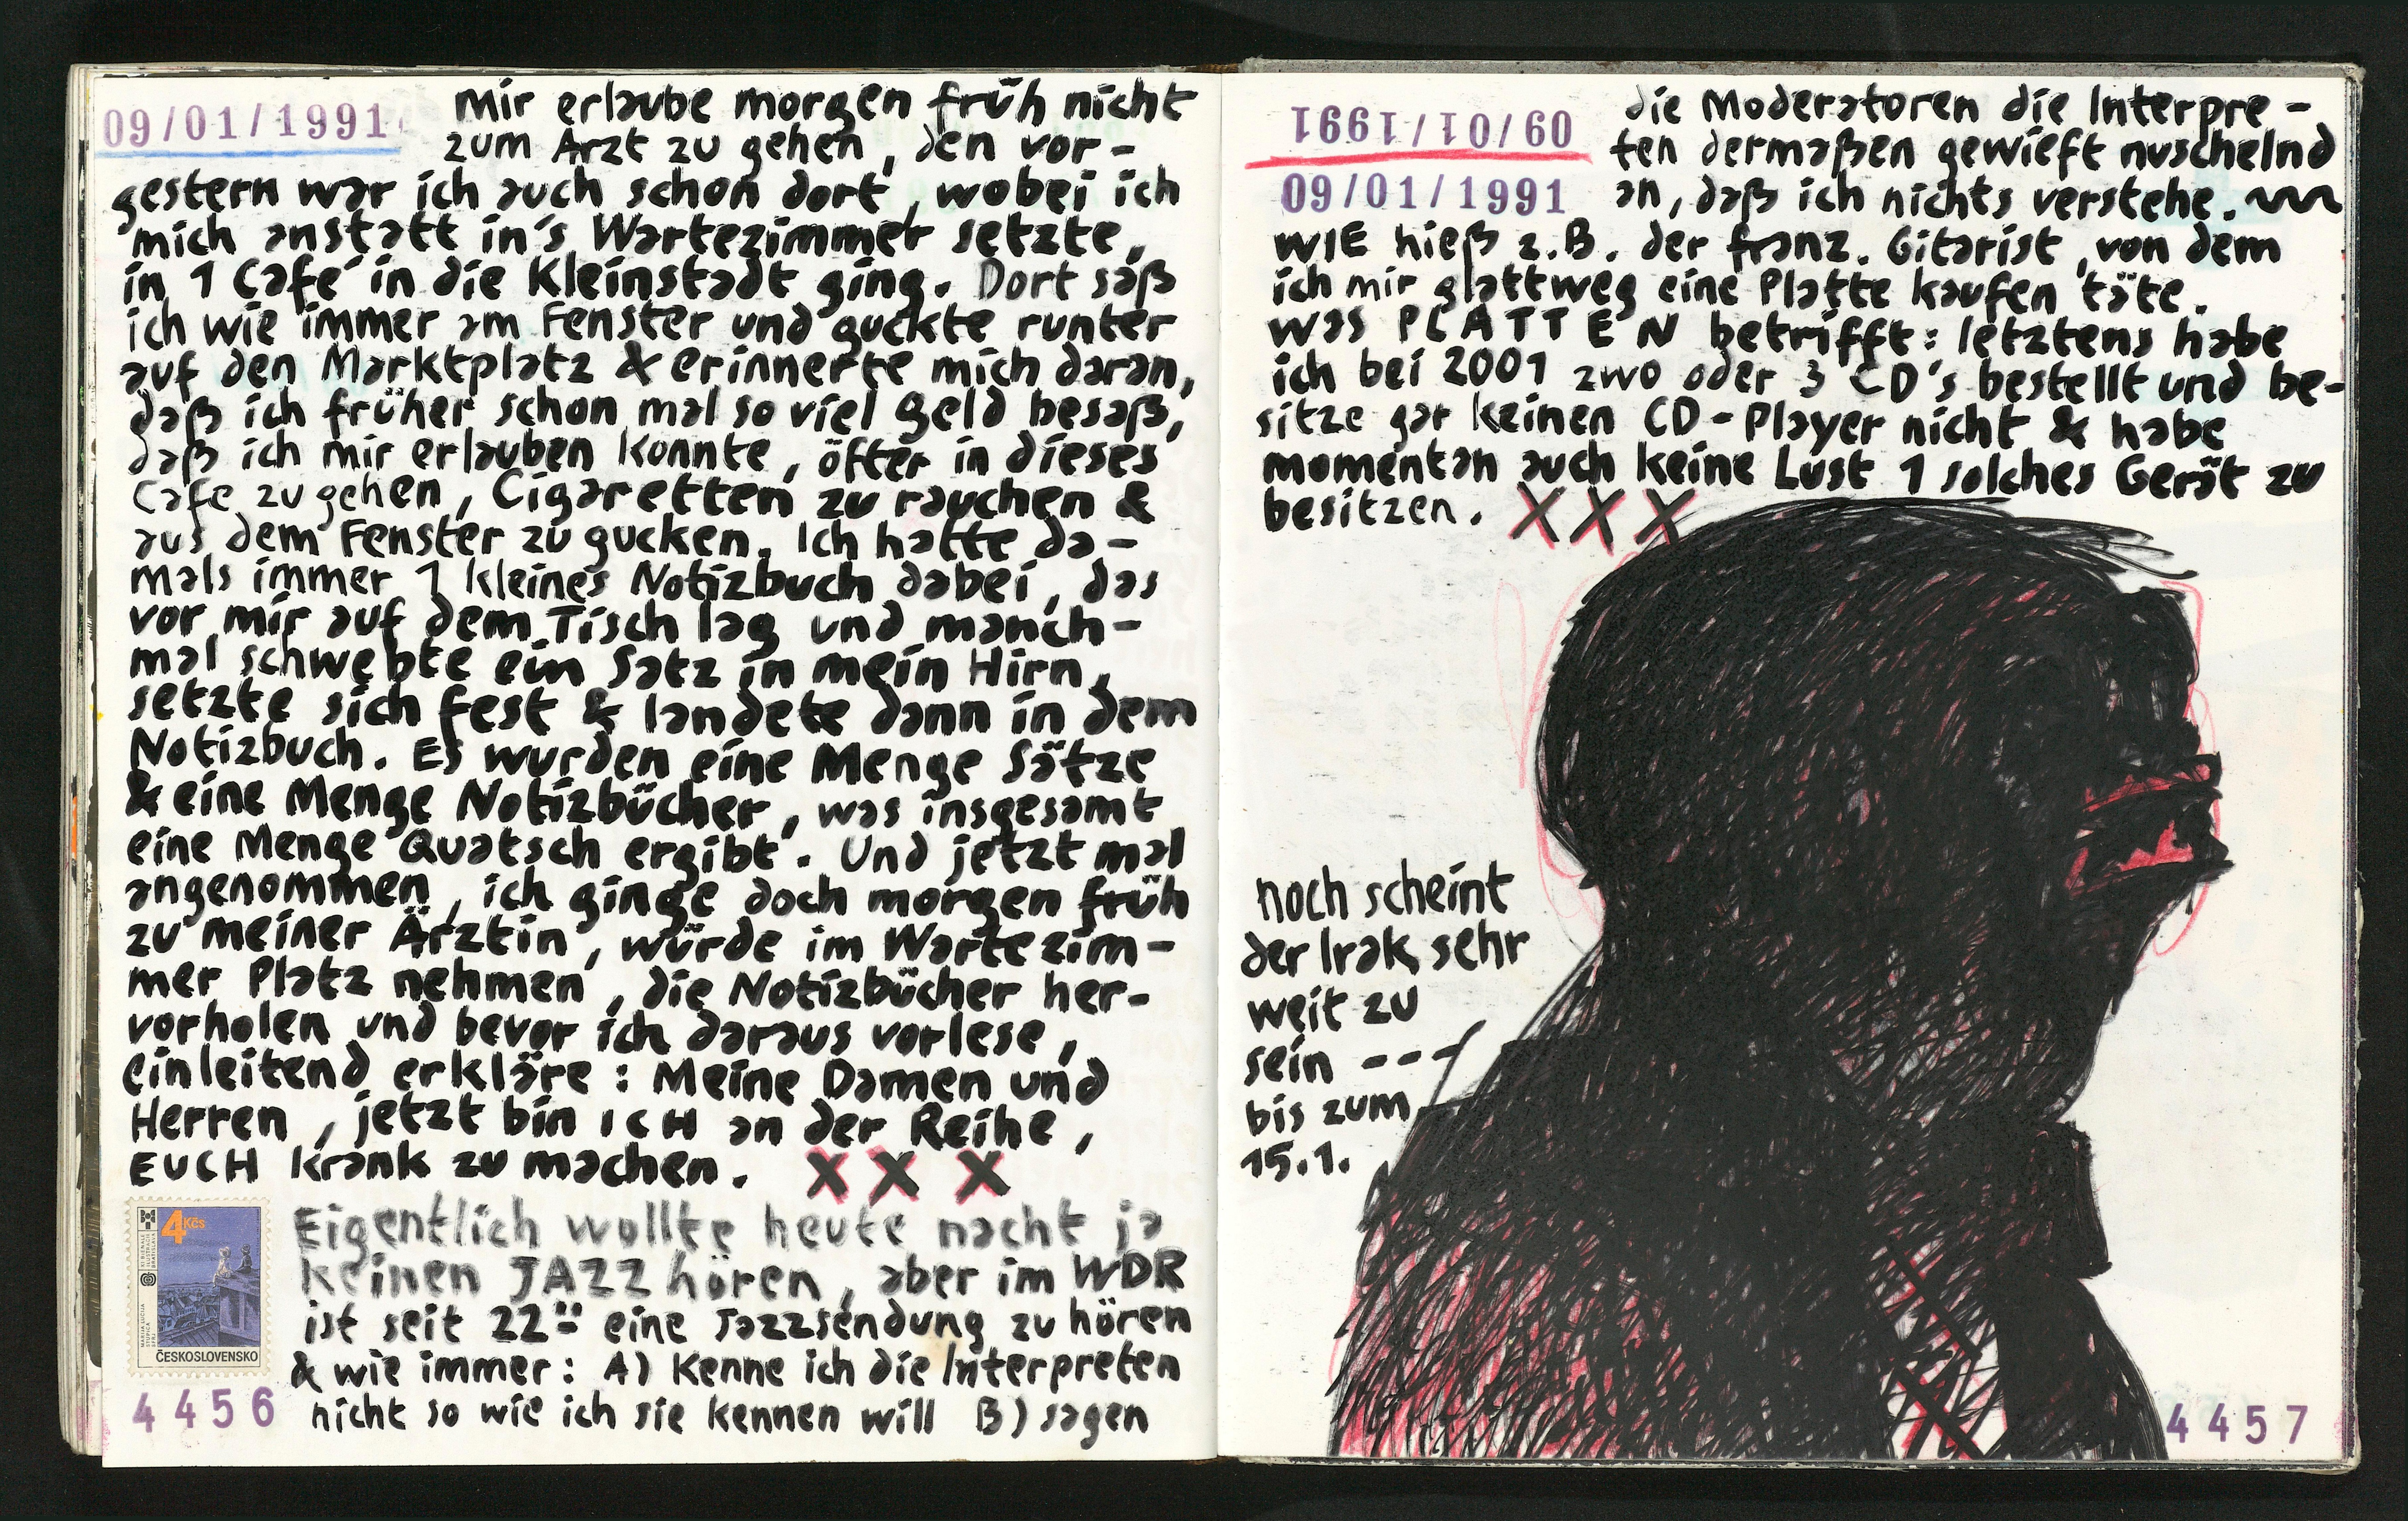 09/01/1991
Mir erlaube morgen früh nicht
zum Arzt zu gehen, den vor-
gestern war ich auch schon dort, wobei ich
mich anstatt in's Wartezimmer setzte,
in 1 Café in die Kleinstadt ging. Dort saß
ich wie immer am Fenster und guckte runter
auf den Marktplatz & erinnerte mich daran,
daß ich früher schon mal so viel Geld besaß,
daß ich mir erlauben konnte, öfter in dieses
Cafe zu gehen, Cigaretten zu rauchen &
aus dem Fenster zu gucken. Ich hatte da-
mals immer 1 kleines Notizbuch dabei, das
vor mir auf dem Tisch lag und manch-
mal schwebte ein Satz in mein Hirn,
setzte sich fest & landete dann in dem
Notizbuch. Es wurden eine Menge Sätze
& eine Menge Notizbücher, was insgesamt
eine Menge Quatsch ergibt. Und jetzt mal
angenommen, ich ginge doch morgen früh
zu meiner Ärztin, würde im Wartezim-
mer Platz nehmen, die Notizbücher her-
vorholen und bevor ich daraus vorlese,
einleitend erkläre: Meine Damen und
Herren, jetzt bin ICH an der Reihe,
EUCH krank zu machen. XXX
Eigentlich wollte heute nacht ja
keinen JAZZ hören, aber im WDR
ist seit 22°° eine Jazzsendung zu hören
& wie immer: A) Kenne ich die Interpreten
nicht so wie ich sie kennen will B) sagen
4 Kčs
ČESKOSLOVENSKO
4456
09/01/1991
09/01/1991
die Moderatoren die Interpre-
ten dermaßen gewieft nuschelnd
an, daß ich nichts verstehe.
WIE hieß z.B. der franz. Gitarist, von dem
ich mir glattweg eine Platte kaufen täte.
Was PLATTEN betrifft: letztens habe
ich bei 2001 zwo oder 3 CD's bestellt und be-
sitze gar keinen CD-Player nicht & habe
momentan auch keine Lust 1 solches Gerät zu
besitzen. XXX
noch scheint
der Irak sehr
weit zu
sein ---
bis zum
15.1.
4457